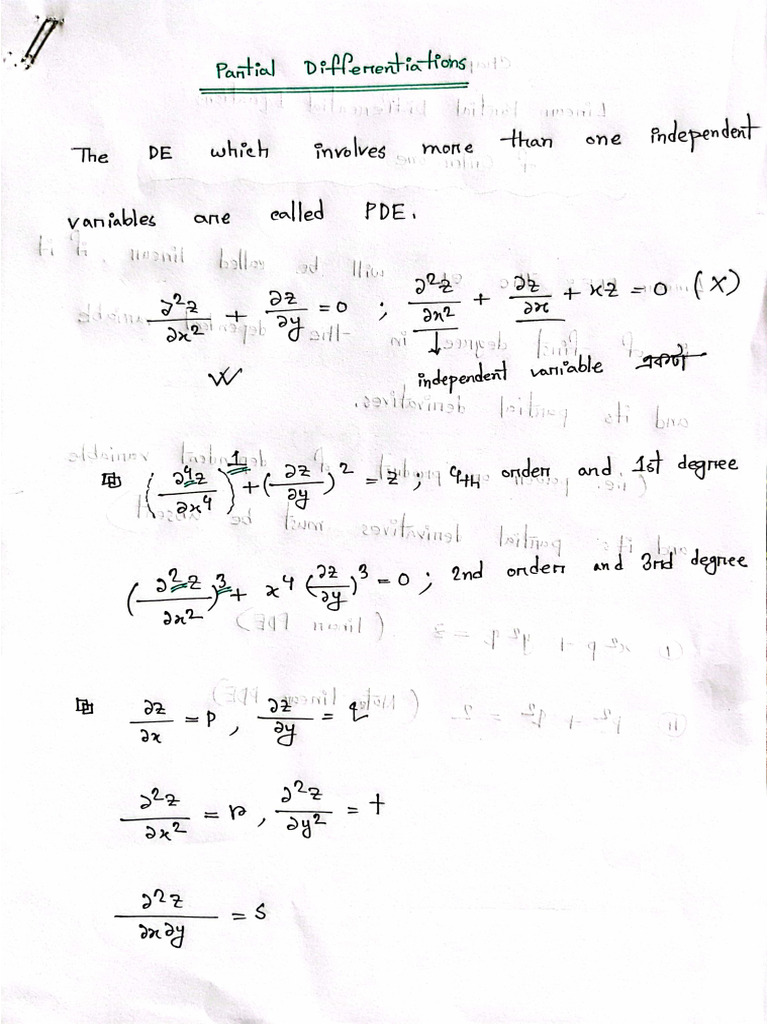 Partial Differentiations
The DE which involves more than one independent
variables are called PDE.
∂²z/∂x² + ∂z/∂y = 0 ; ∂²z/∂x² + ∂z/∂x + xz = 0 (X)
independent variable একটা
(∂⁴z/∂x⁴)¹ + (∂z/∂y)² = z ; 4th order and 1st degree
(∂²z/∂x²)³ + x⁴ (∂z/∂y)³ = 0 ; 2nd order and 3rd degree
∂z/∂x = p , ∂z/∂y = q
∂²z/∂x² = r , ∂²z/∂y² = t
∂²z/∂x∂y = s